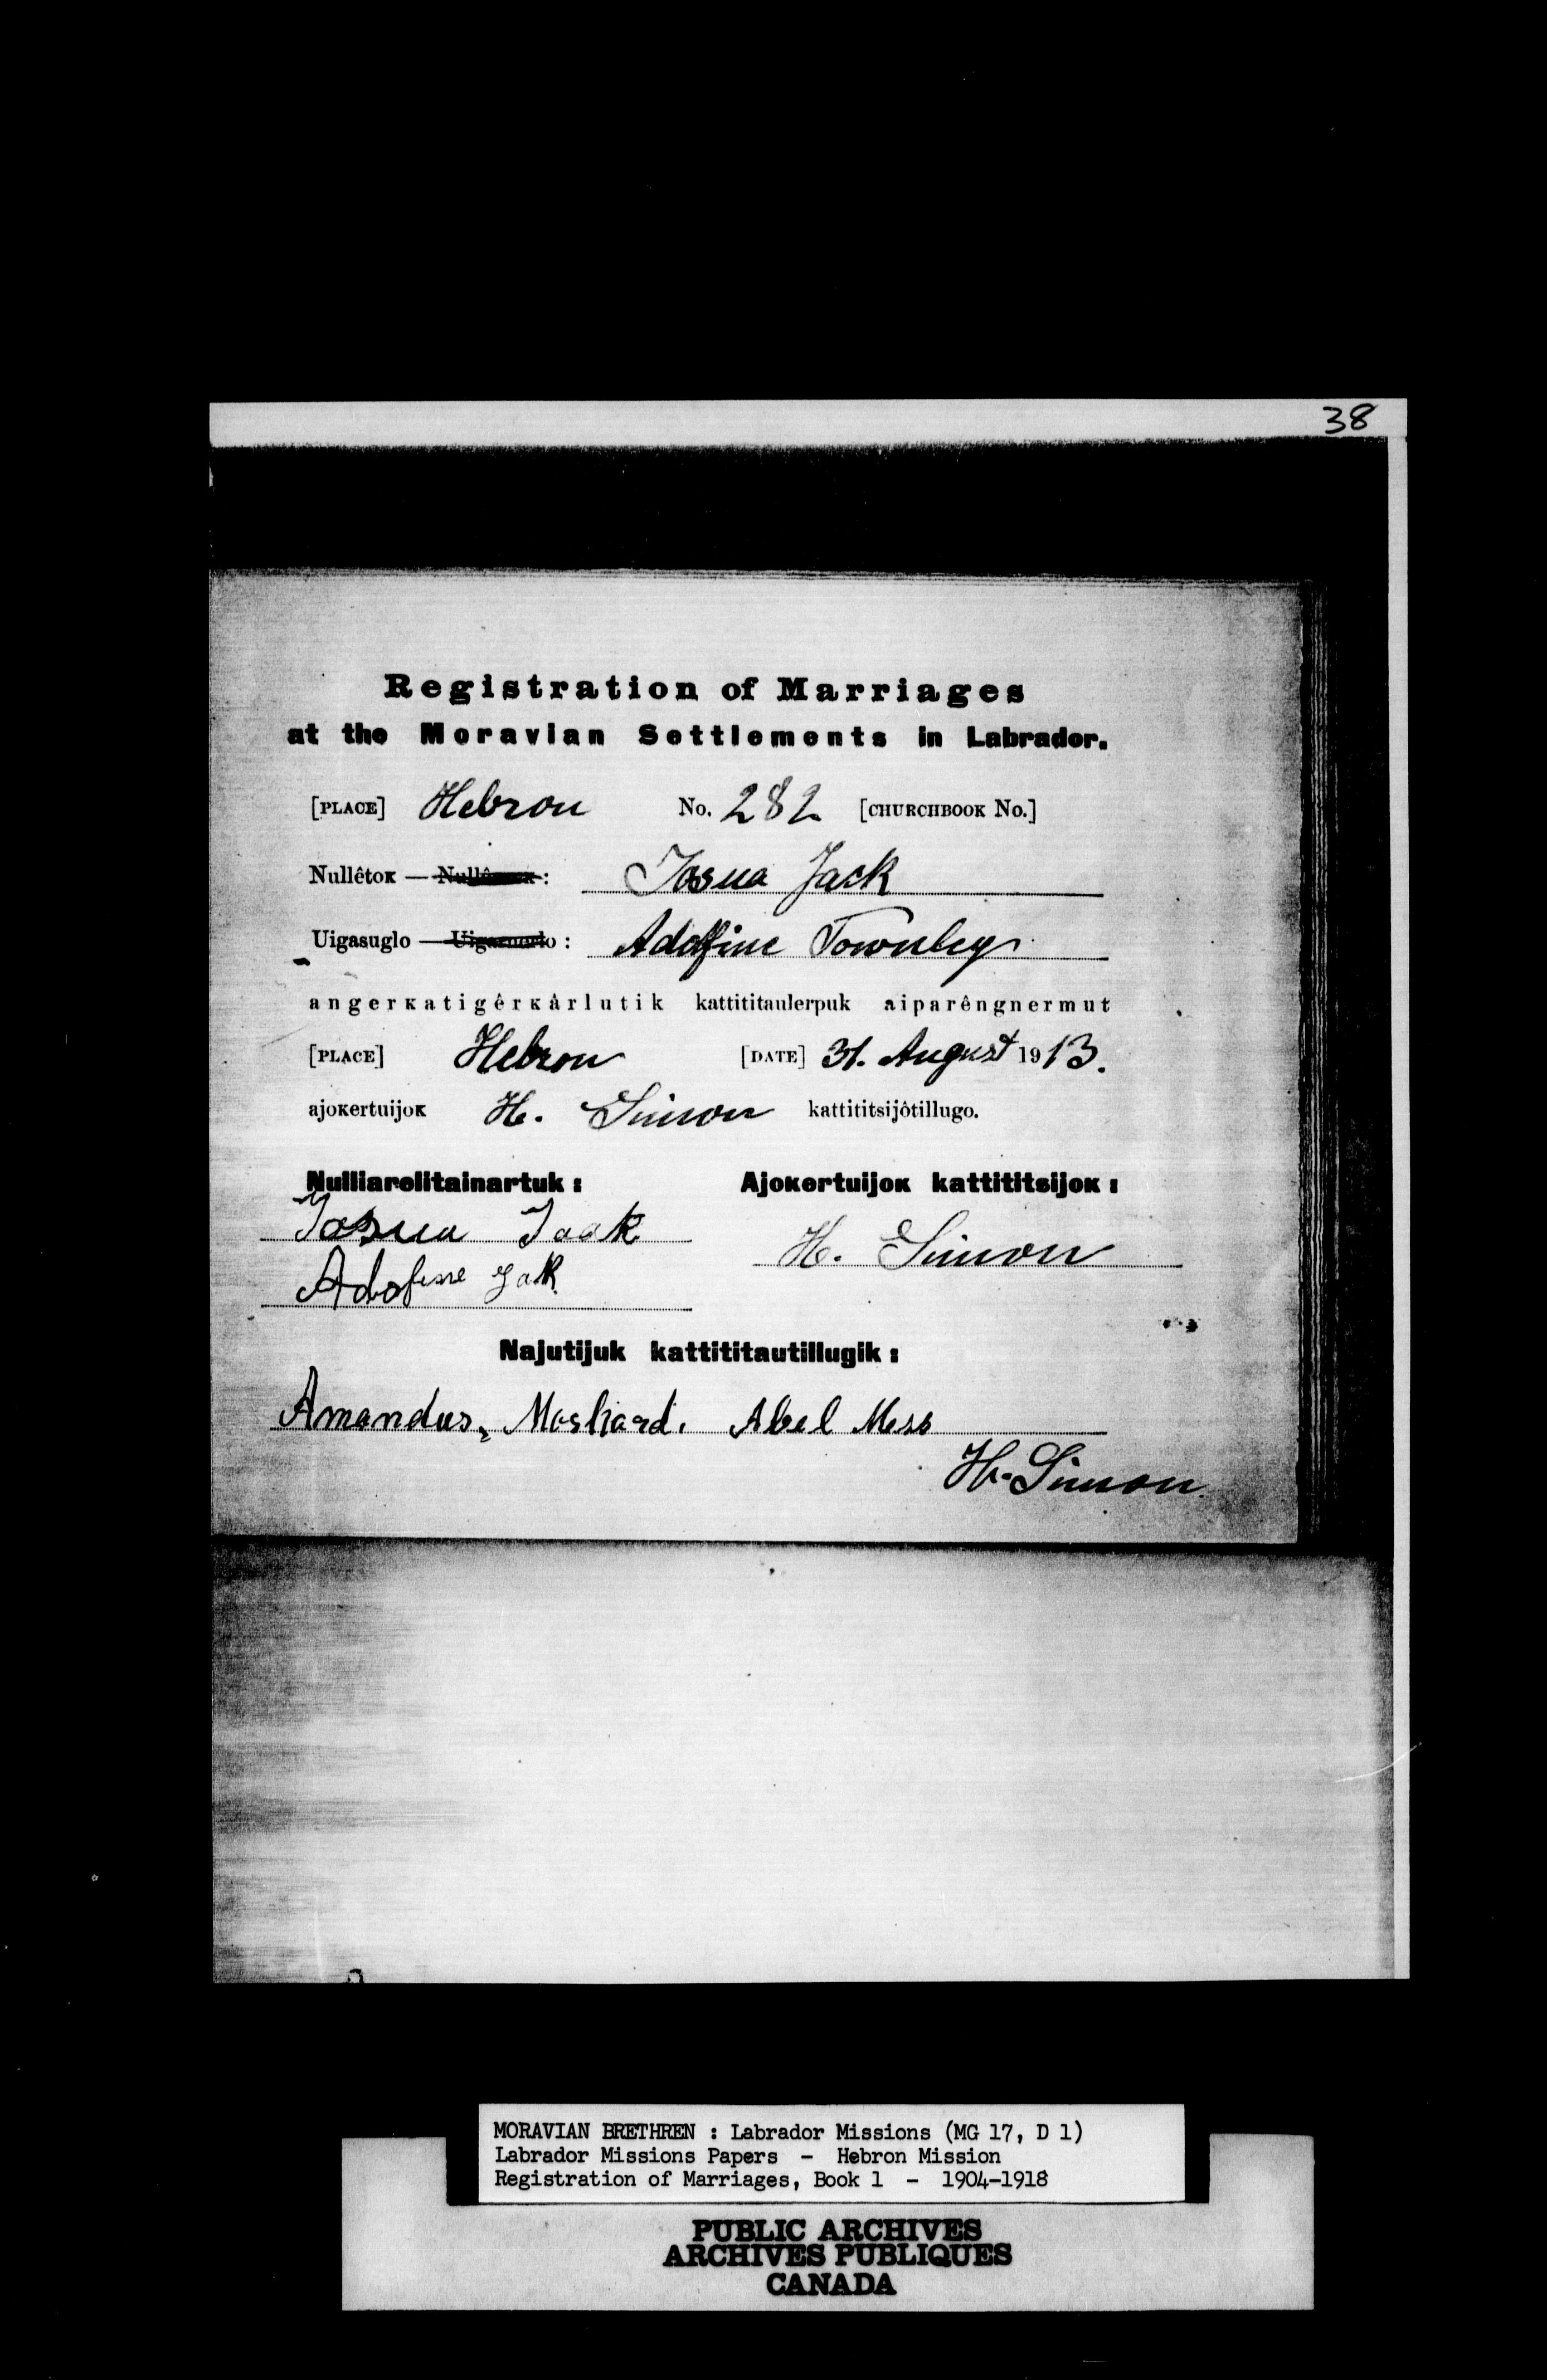 38
Registration of Marriages
at the Moravian Settlements in Labrador.
[PLACE] Hebron No. 282 [CHURCHBOOK No.]
Nullêtoĸ — : Josua Jack
Uigasuglo — : Adolfine Townley
angerĸatigêrĸârlutik kattititaulerpuk aiparêngnermut
[PLACE] Hebron [DATE] 31. August 1913.
ajoĸertuijoĸ H. Simon kattititsijôtillugo.
Nulliarelitainartuk : Ajoĸertuijoĸ kattititsijoĸ :
Josua Jaak
H. Simon
Adofine Jak
Najutijuk kattititautillugik :
Amandus, Abel
H. Simon.
MORAVIAN BRETHREN : Labrador Missions (MG 17, D 1)
Labrador Missions Papers - Hebron Mission
Registration of Marriages, Book 1 - 1904-1918
PUBLIC ARCHIVES
ARCHIVES PUBLIQUES
CANADA